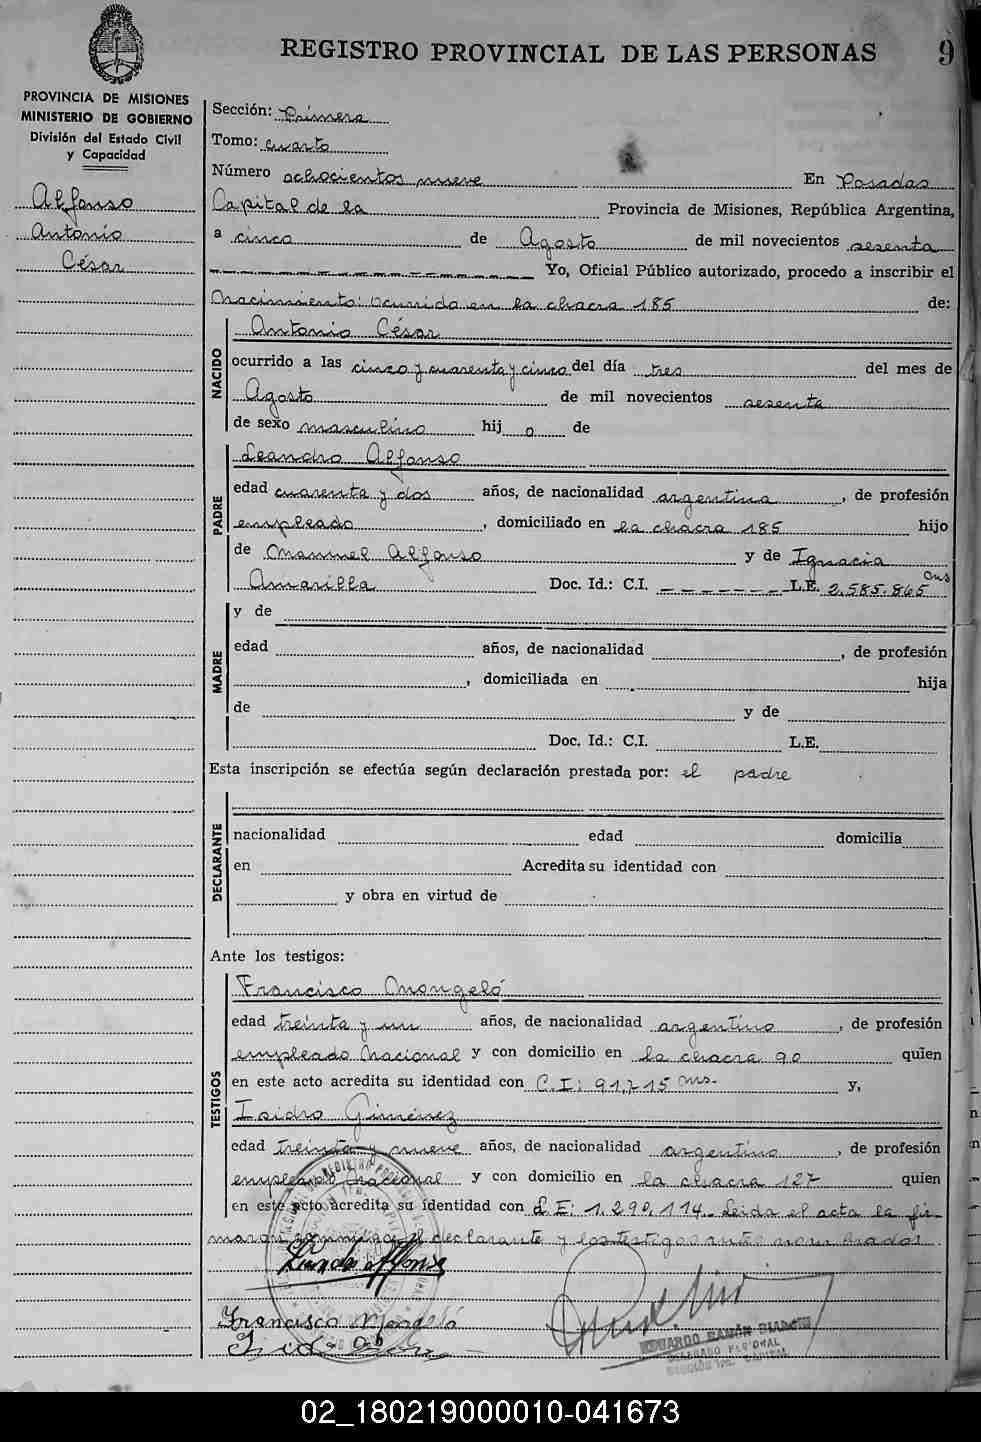 REGISTRO PROVINCIAL DE LAS PERSONAS 9
PROVINCIA DE MISIONES
MINISTERIO DE GOBIERNO
División del Estado Civil
y Capacidad
Alfonso
Antonio
César
Sección: Primera
Tomo: cuarto
Número ochocientos nueve En Posadas
Capital de la Provincia de Misiones, República Argentina,
a cinco de Agosto de mil novecientos sesenta
Yo, Oficial Público autorizado, procedo a inscribir el
Nacimiento: ocurrido en la chacra 185 de:
NACIDO
Antonio César
ocurrido a las cinco y cuarenta y cinco del día tres del mes de
Agosto de mil novecientos sesenta
de sexo masculino hij o de
PADRE
Leandro Alfonso
edad cuarenta y dos años, de nacionalidad argentina, de profesión
empleado, domiciliado en la chacra 185 hijo
de Manuel Alfonso y de Ignacia
Amarilla Doc. Id.: C.I. L.E. 2.585.865 Mns
MADRE
y de
edad años, de nacionalidad , de profesión
, domiciliada en hija
de y de
Doc. Id.: C.I. L.E.
Esta inscripción se efectúa según declaración prestada por: el padre
DECLARANTE
nacionalidad edad domicilia
en Acredita su identidad con
y obra en virtud de
Ante los testigos:
TESTIGOS
Francisco Mongeló
edad treinta y un años, de nacionalidad argentino, de profesión
empleado Nacional y con domicilio en la chacra 90 quien
en este acto acredita su identidad con C.I: 91.715 Mns. y,
Isidro Giménez
edad treinta y nueve años, de nacionalidad argentino, de profesión
empleado nacional y con domicilio en la chacra 127 quien
en este acto acredita su identidad con L.E: 1.290.114. Leida el acta la fir-
maron conmigo el declarante y los testigos antes nombrados.
Leandro Alfonso
Francisco Mongeló
EDUARDO RAMÓN BIANCHI
DELEGADO REGIONAL
SECCIÓN 1ra. CAPITAL
02_180219000010-041673